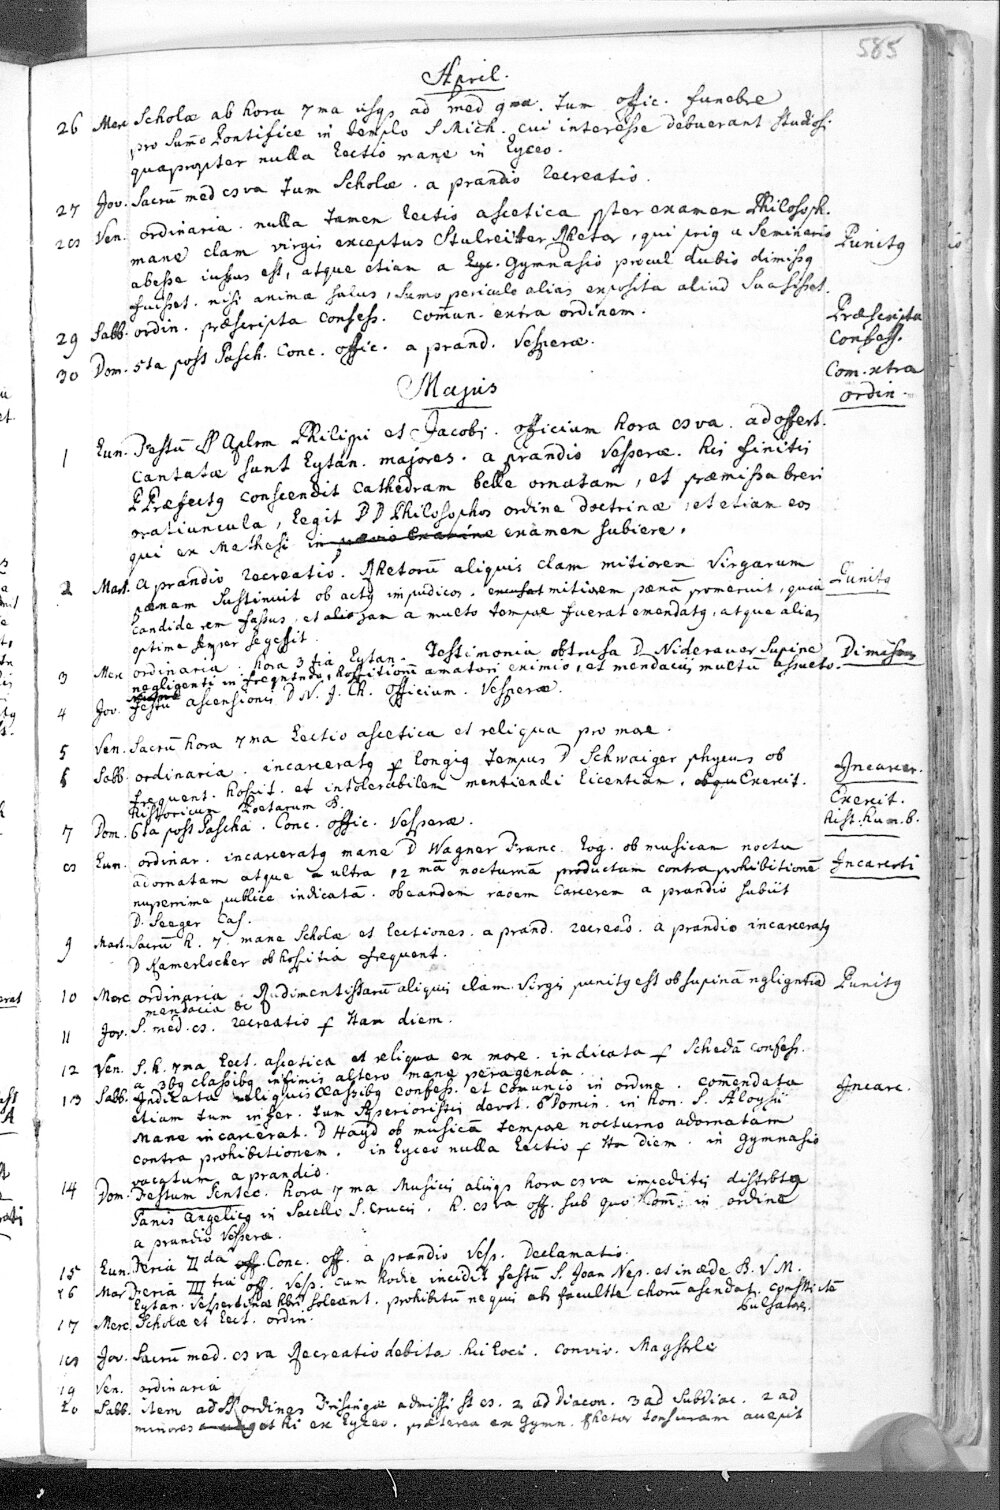 585
April.
26 Merc Scholæ ab hora 7ma usq ad med 9ma. Tum offic. funebre
pro Sum̄o Pontifice in templo S Mich. cui interesse debuerant studiosi.
quapropter nulla Lectio mane in Lyceo.
27 Jov. Sacrū med 8va Tum Scholæ. a prandio recreatio.
28 Ven. ordinaria. nulla tamen Lectio ascetica pter examen Philosoph.
mane clam virgis exceptus Stulreitter Rhetor, qui prig a Seminario Punitg
abesse iussus est, atque etiam a Lyc. Gymnasio procul dubio dimissg
fuisset. nisi animæ salus, sumo periculo alias exposita aliud suasisset.
29 Sabb. ordin. præscripta Confess. com̄un. extra ordinem. Præscripta
Confess.
30 Dom. 5ta post Pasch. Conc. offic. a prand. Vesperæ. Com. xtra
ordin.
Majus
1 Lun. Festū SS Aplorm Philippi et Jacobi. officium hora 8va. ad offert.
cantatæ sunt Lytan. majores. a prandio Vesperæ. his finitis
P Præfectg conscendit cathedram belle ornatam, et præmissa brevi
oratiuncula, Legit DD Philosophos ordine doctrinæ, et etiam eos
qui ex Mathesi in examen subiere.
2 Mart. a prandio recreatio. Rhetorū aliquis clam mitiorem virgarum Punitg
pœnam sustinuit ob actg impudicos. mitiorem pœnā promeruit, quia
candide rem fassus, et jam a multo tempore fuerat emendatg, atque alias
optime semper se gessit.
3 Merc ordinaria. hora 3tia Lytan. Testimonia obtrusa D Niderauer supine Dimissus
negligenti in freqntndo, hospitiorū amatori eximio, et mendaciis multū assueto.
4 Jov. Festū ascensionis D N. J. Ch. officium. Vesperæ.
5 Ven. Sacrū hora 7ma Lectio ascetica et reliqua pro more.
6 Sabb. ordinaria. incarceratg p longig tempus D Schwaiger phycus ob Incarcer.
frequent. hospit. et intolerabilem mentiendi licentiam. Exercit. Exercit.
historicum Poetarum B. hist. hum. B.
7 Dom. 6ta post Pascha. Conc. offic. Vesperæ.
8 Lun. ordinar. incarceratg mane D Wagner Franc. Log. ob musicam noctu Incarcerti
adornatam atque a ultra 12mā nocturnā productam contra prohibitionē
nuperrime publice indicatā. ob eandem raoem carcerem a prandio subiit
D. Seeger Cas.
9 Mart. Sacrū h. 7. mane Scholæ et Lectiones. a prand. recreaō. a prandio incarceratg
D Kamerlocher ob hospitia frequent.
10 Merc ordinaria. Rudimentistarū aliquis clam virgis punitg est ob supinā ngligntiā Punitg
mendacia &c
11 Jov. S. med. 8. recreatio p Ham diem.
12 Ven. S. h. 7ma Lect. ascetica et reliqua ex more. indicata p Schedā confess.
a 3bg classibg infimis altero mane peragenda.
13 Sabb. Indicata reliquis classibg confess. et com̄unio in ordine. com̄endata Incarc.
etiam tum infer. tum superioristis devot. 6 Domin. in hon. S. Aloysii
Mane incarcerat. D Haÿd ob musicā tempore nocturno adornatam
contra prohibitionem. in Lyceo nulla Lectio p Ha Diem. in gymnasio
vacatum a prandio.
14 Dom. Festum Pentec. hora 7ma Musicis aliisqs hora 8va impeditis distrbtg
Panis Angelicg in Sacello S. Crucis. h. 8va off. sub quo Com̄. in ordine
a prandio Vesperæ.
15 Lun. Feria IIda Conc. off. a prandio Vesp. Declamatio.
16 Mar Feria IIItia off. Vesp. cum hodie incidit festū S. Joan Nep. et in æde B. V. M.
Lytan. vespertinæ hbri soleant. prohibitū ne quis abs facultte chorū ascendat.
pulsatores.
17 Merc. Scholæ et Lect. ordin.
18 Jov. Sacrū med. 8va Recreatio debita hic Loci. conviv. Magstrle
19 Ven. ordinaria
20 Sabb. item ad SS ordines Frisingæ admissi st 8. 2 ad Diacon. 3 ad Subdiac. 2 ad
minores et hi ex Lyceo. præterea ex Gymn. Rhetor tonsuram accepit